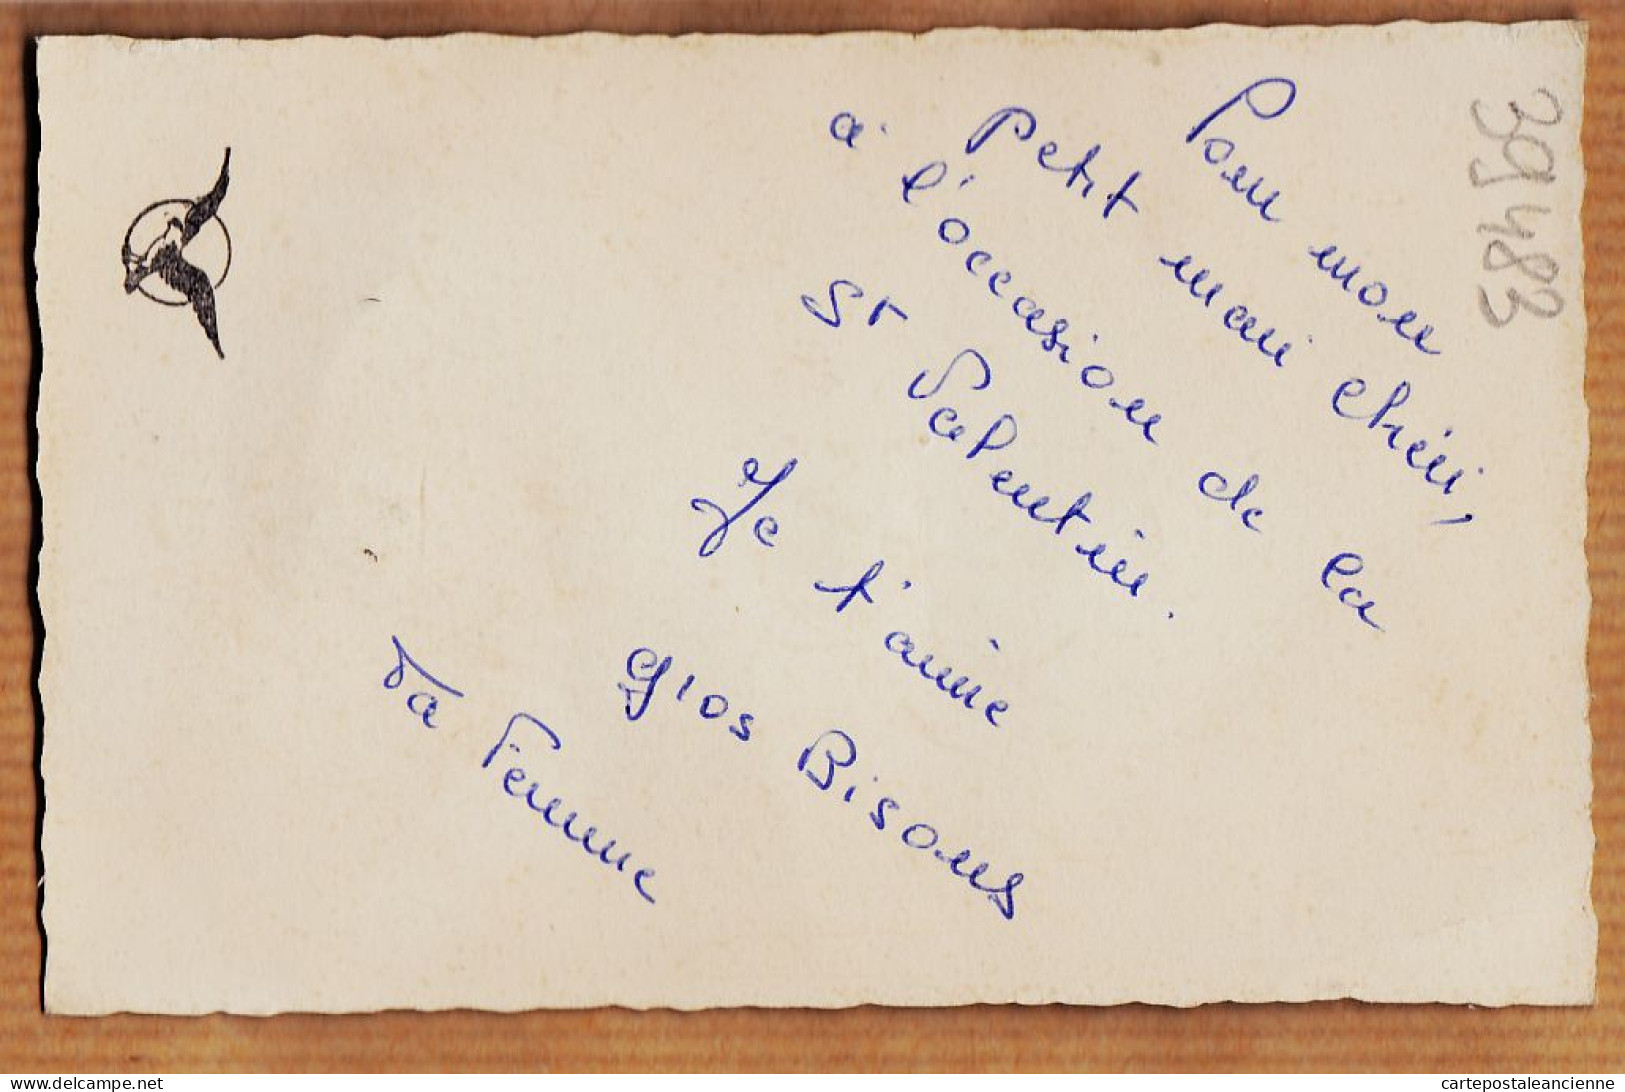 Pour mon
petit mari chéri,
à l'occasion de la
St Valentin.
Je t'aime
gros Bisous
Ta Femme
39483
delcampe.net
cartepostaleancienne